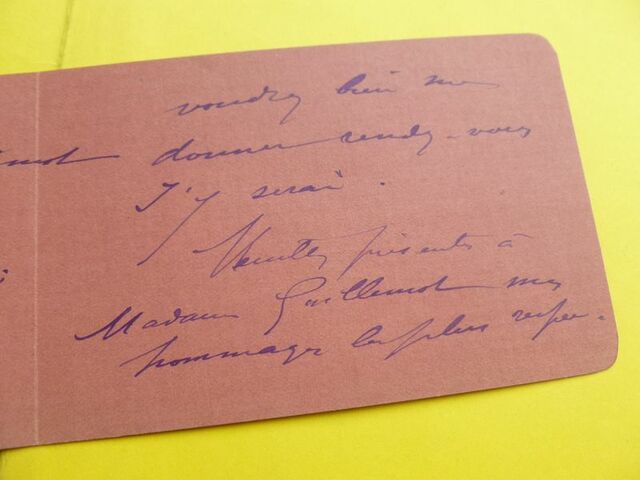 voudrez bien me
donner rendez-vous
J'y serai.
Veuillez présenter à
Madame Guillemot mes
hommages les plus respec-